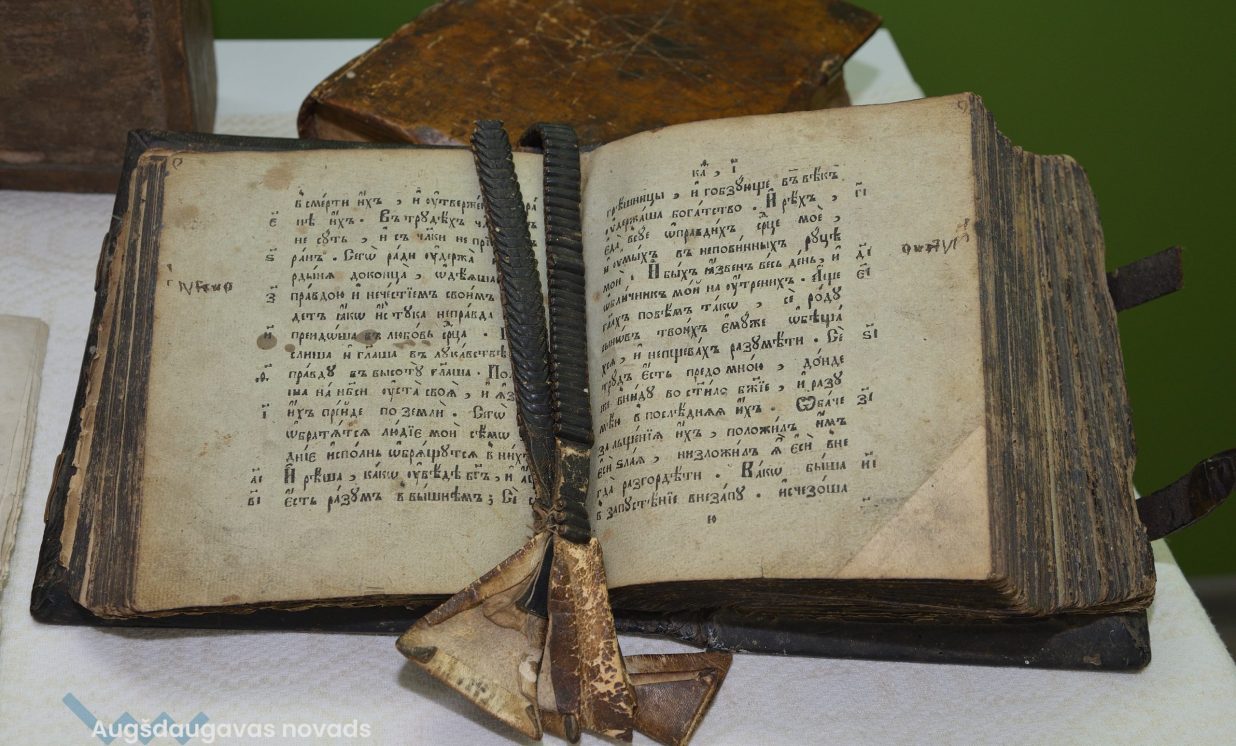 в̾ сме́рти и҆́хъ , и҆ оу҆твержє
є҃ нїѣ и҆́хъ . Въ трꙋдѣ́хъ
не сꙋ́ть , и҆ съ чл҃ки не
ѕ҃ ра́нъ . Сегѡ̀ ра́ди оу҆держа̀
рды́ня доконца , ѡ҆дѣ́ѧша
з҃ пра́вдою и҆ нече́стїємъ свои́мъ
де́тъ ꙗ҆́кѡ и҆стꙋ́ка непра́вда
и҃ преидо́ша въ любо́вь ср҃ца .
слиша и҆ гл҃аша въ лꙋка́встве
ѳ҃ пра́вдꙋ въ высотꙋ̀ гл҃аша .
ша на нб҃си оу҆ста̀ своѧ̀ , и҆
і҃ и҆́хъ пре́йде по землѝ . Сегѡ̀
ѡ҆братѧ́тсѧ лю́дїе мои̑ сѣ́мѡ
дні́е и҆спо́лнь ѡ҆брѧ́щꙋтсѧ в ни́хъ
а҃і И҆ рѣ́ша , ка́кѡ оу҆вѣ́дѣ бг҃ъ , и҆
в҃і є҆́сть ра́зꙋмъ в вы́шнѣмъ ; Сѐ
к҃а , і҃
грѣ́шницы , и҆ гобзꙋ́юще въ вѣ́къ
оу҆держа́ша бога́тство . И҆ рѣ́хъ , г҃і
є҆да̀ всꙋ́е ѡ҆правди́хъ ср҃це моѐ ,
и҆ оу҆мы́хъ въ непови́нныхъ рꙋ́цѣ
мои̑ . И҆ бы́хъ ꙗ҆́звенъ ве́сь де́нь , и҆ д҃і
ѡ҆бличи́никъ мо́й на оу҆́тренихъ . А҆́ще є҃і
гл҃ахъ повѣ́мъ та́кѡ , сѐ ро́дꙋ
сынѡ́въ твои́хъ є҆мꙋ́же ѡ҆бѣща̀
хсѧ , и҆ непщева́хъ разꙋмѣ́ти . Сѐ ѕ҃і
трꙋ́дъ є҆́сть предо мно́ю , до́нде
же вни́дꙋ во ст҃и́ло бж҃їе , и҆ разꙋ
мѣ́ю в послѣ́днѧѧ и҆́хъ . Ѻ҆ба́че з҃і
за льще́нїѧ и҆́хъ , положи́лъ и҆́мъ
є҆сѝ ѕла́ѧ , низложи́лъ ѧ҆̀ є҆сѝ вне
гда̀ разгордѣ́ти . Ка́кѡ бы́ша и҃і
в запꙋстѣ́нїе внеза́пꙋ . и҆счезо́ша
ю
Augšdaugavas novads